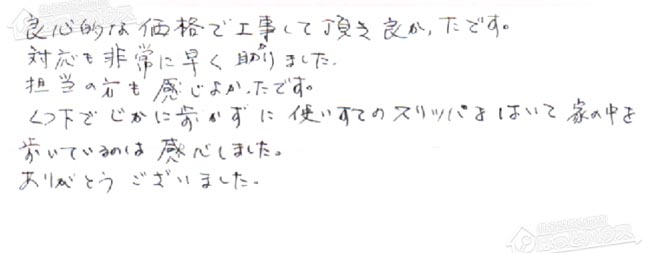 良心的な価格で工事して頂き良かったです。
対応も非常に早く助かりました。
担当の方も感じよかったです。
くつ下でじかに歩かずに使いすてのスリッパをはいて家の中を
歩いているのは感心しました。
ありがとうございました。